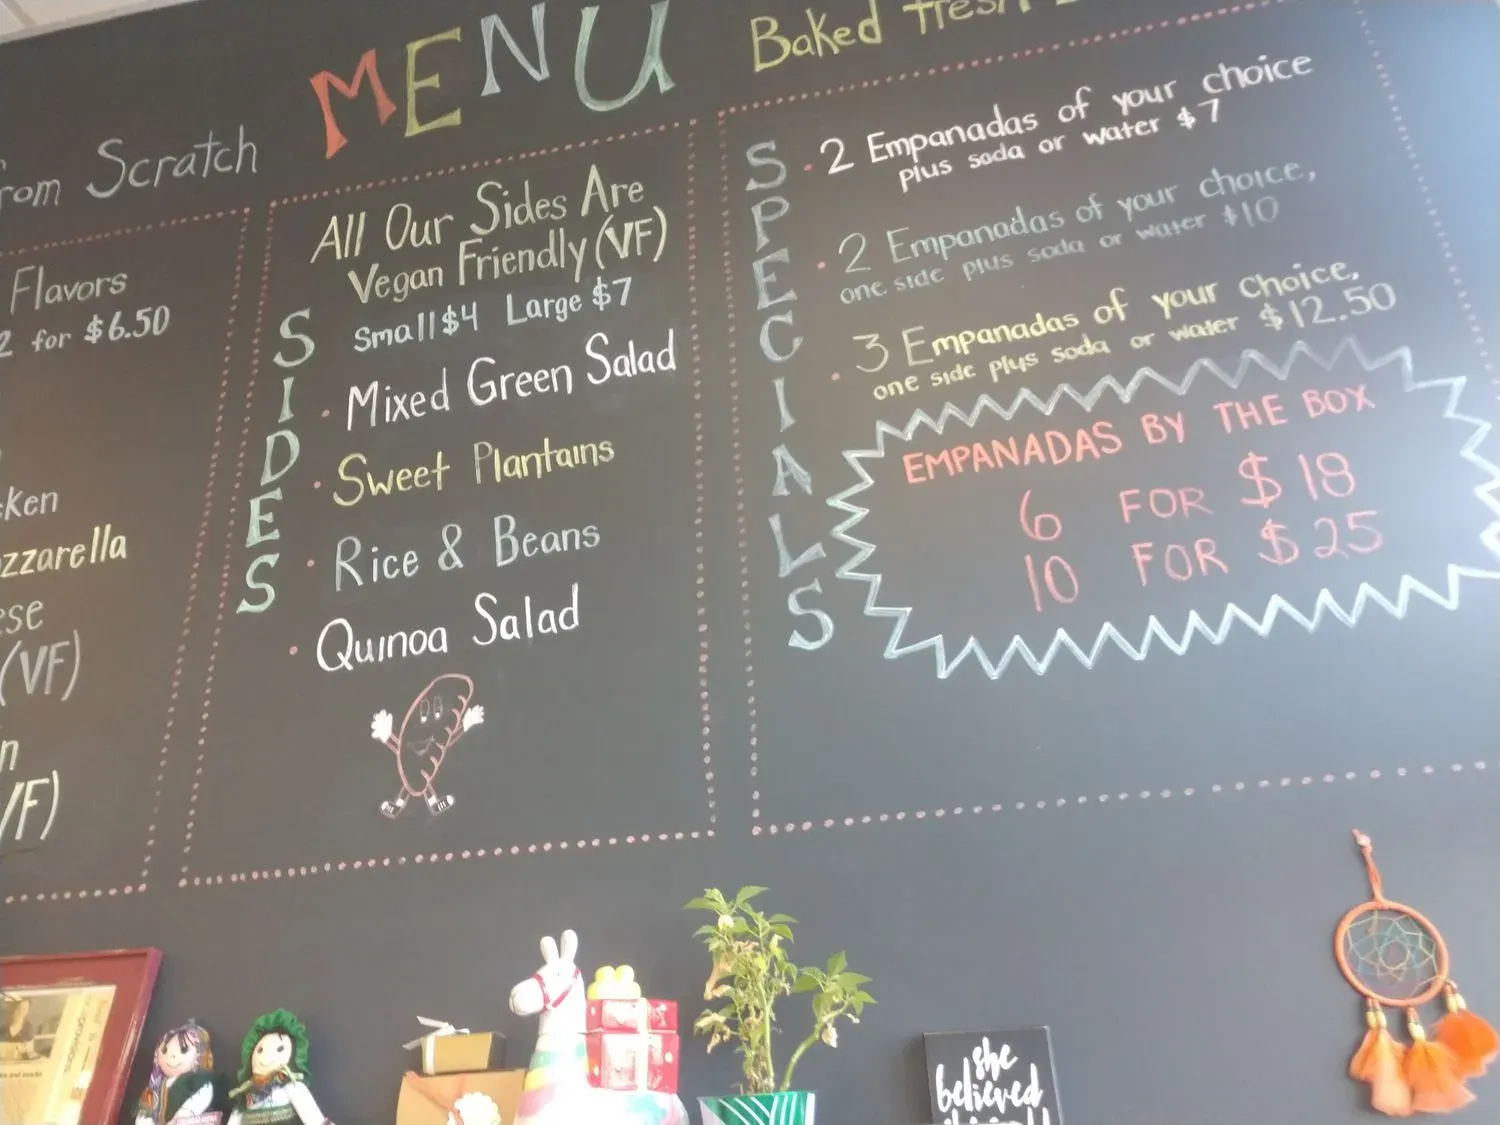 MENU
Baked fresh
Scratch
Flavors
2 for $6.50
(VF)
SIDES
All Our Sides Are
Vegan Friendly (VF)
Small $4 Large $7
· Mixed Green Salad
· Sweet Plantains
· Rice & Beans
· Quinoa Salad
SPECIALS
· 2 Empanadas of your choice
plus soda or water $7
· 2 Empanadas of your choice,
one side plus soda or water $10
· 3 Empanadas of your choice,
one side plus soda or water $12.50
EMPANADAS BY THE BOX
6 FOR $18
10 FOR $25
she
believed